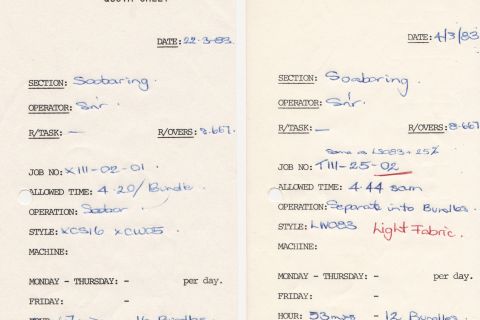 QUOTA SHEET
DATE: 22-3-83.
SECTION: Soabaring.
OPERATOR: Snr.
R/TASK: — R/OVERS: 8.667.
JOB NO: XIII-02-01
ALLOWED TIME: 4.20/Bundle.
OPERATION: Soabar.
STYLE: XCS16 XCW05
MACHINE:
MONDAY - THURSDAY: - per day.
FRIDAY: -
HOUR: Bundles.
DATE: 4/3/83
SECTION: Soabaring.
OPERATOR: Snr.
R/TASK: — R/OVERS: 8.667
Same as LS083 + 25%
JOB NO: TIII-25-02
ALLOWED TIME: 4.44 sam
OPERATION: Separate into Bundles.
STYLE: LW083 Light Fabric.
MACHINE:
MONDAY - THURSDAY: - per day.
FRIDAY: -
HOUR: 53mrs - 12 Bundles.